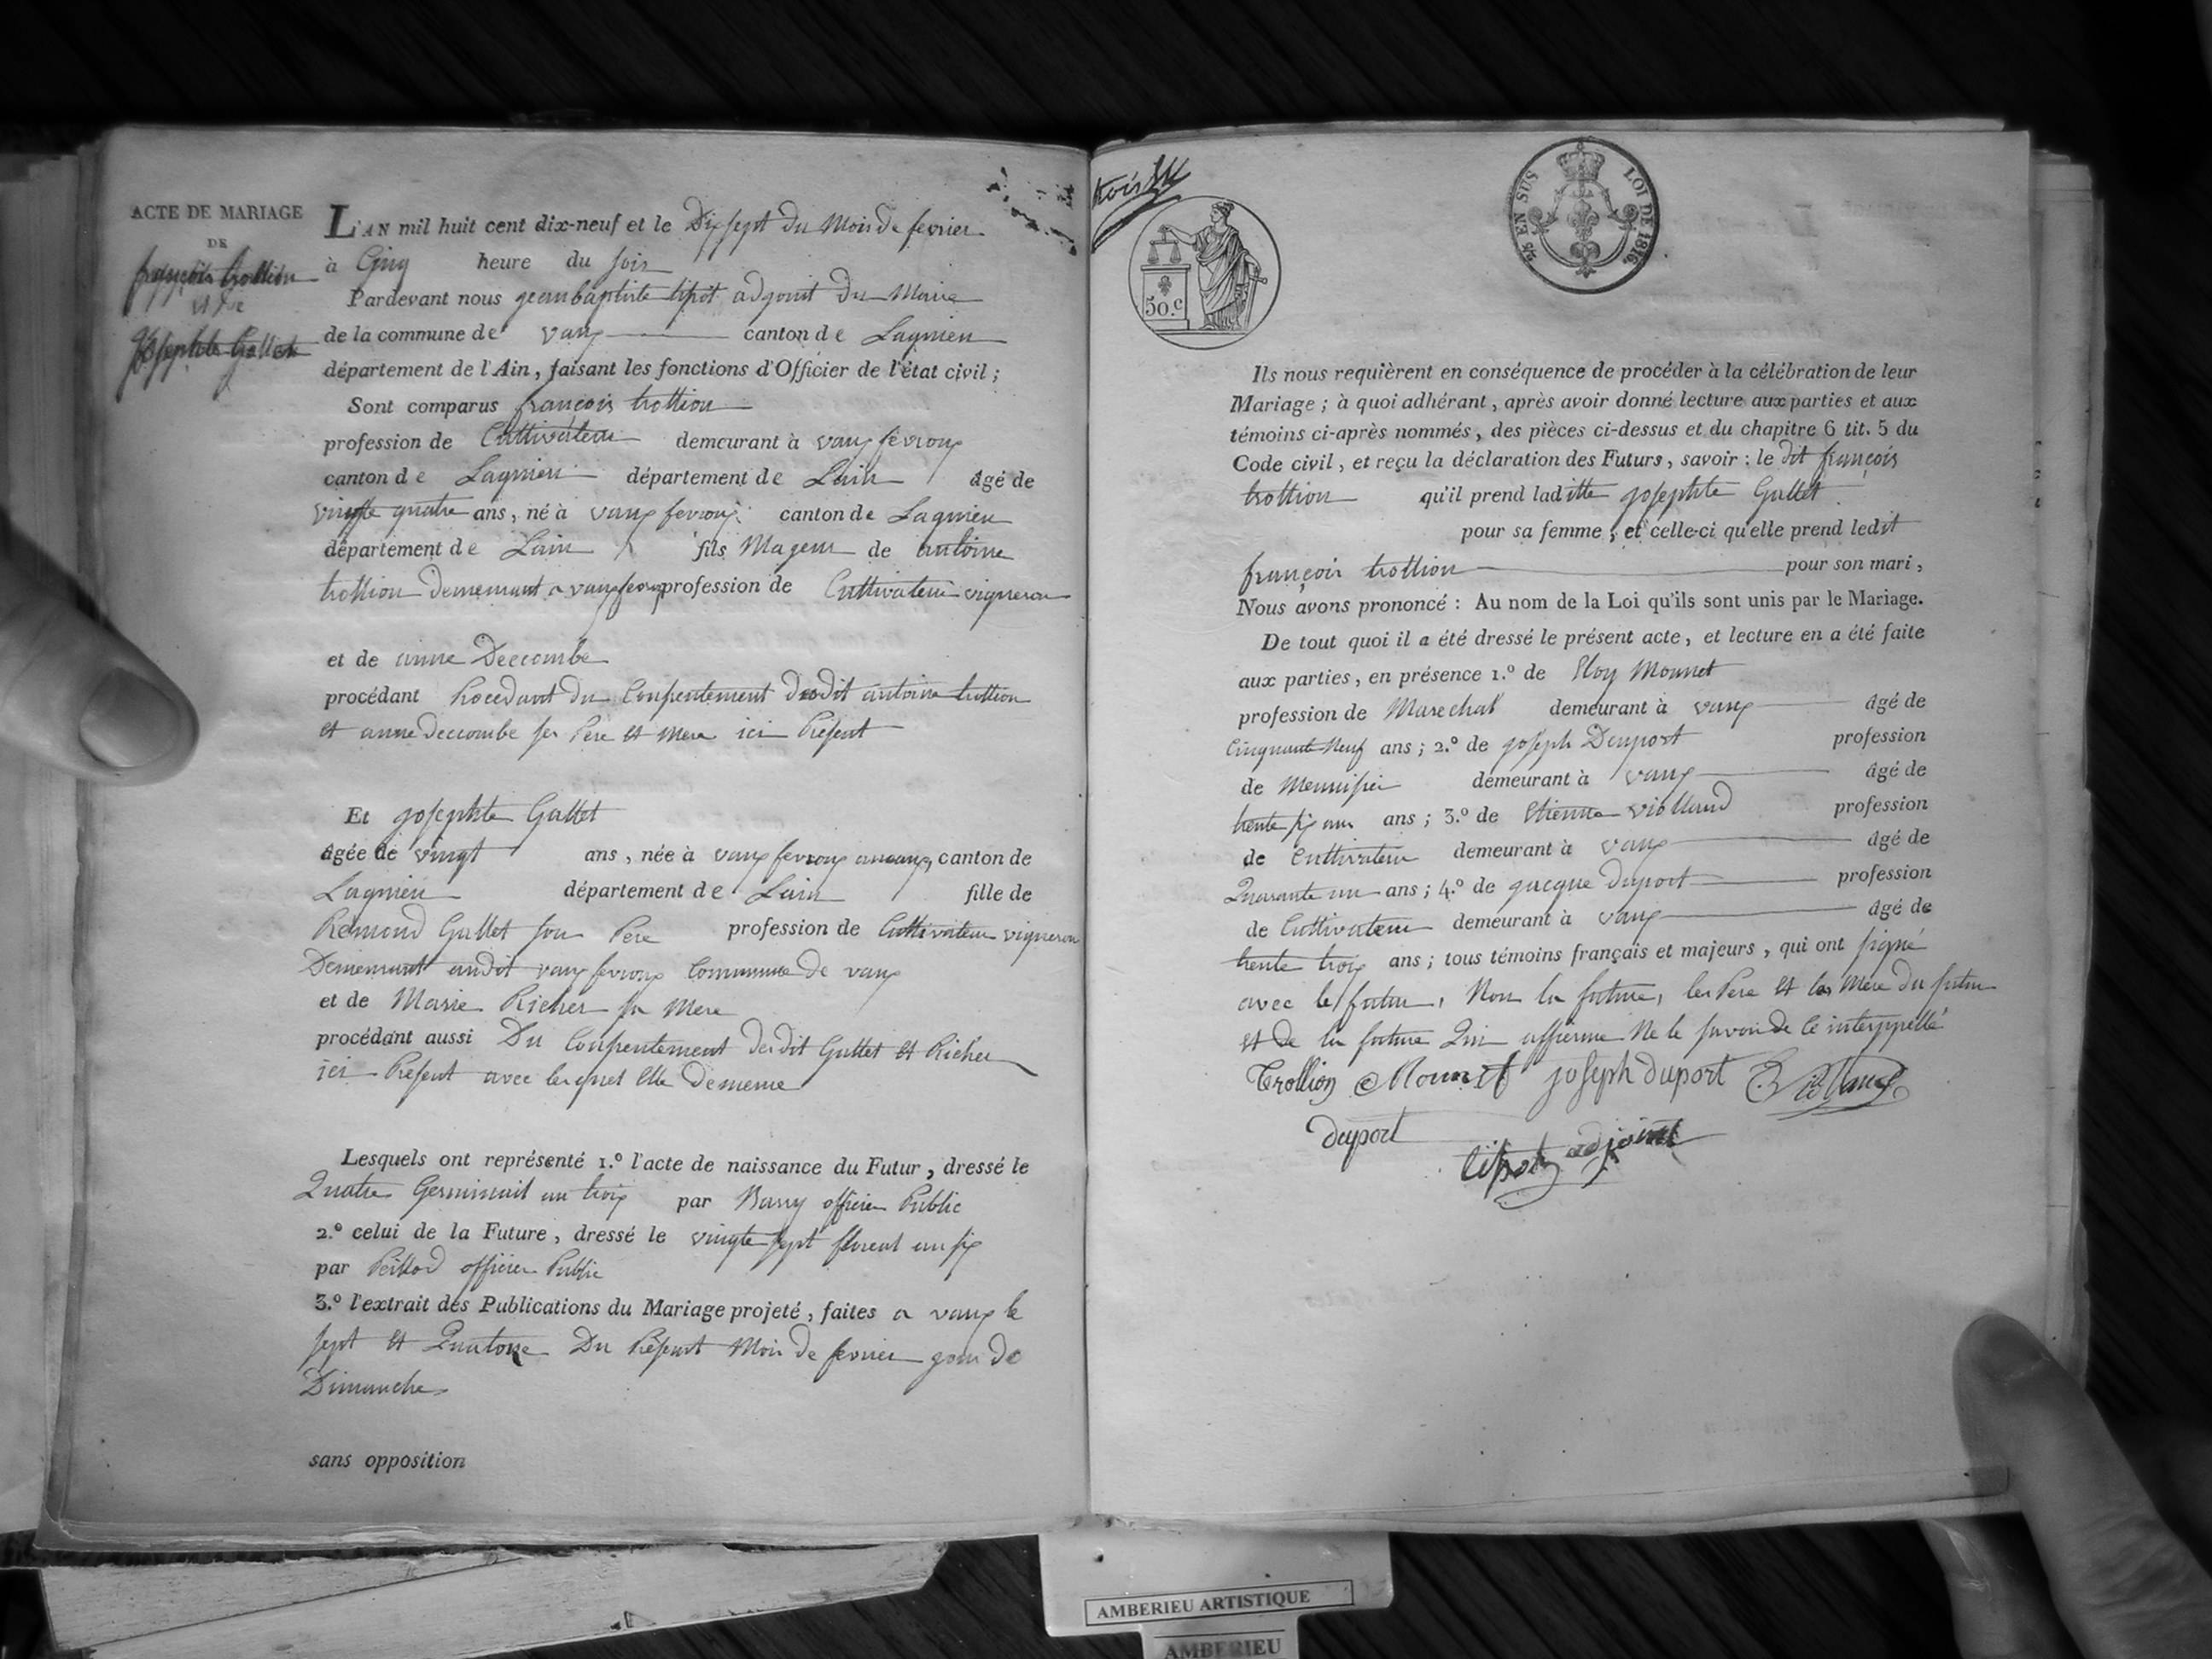 ACTE DE MARIAGE
DE
françois trollion
et de
Josephte Gallet
L'AN mil huit cent dix-neuf et le Dixsept du Mois de fevrier
à Cinq heure du soir
Pardevant nous jeanbaptiste adjoint du Maire
de la commune de vaux canton de Lagnieu
département de l'Ain, faisant les fonctions d'Officier de l'état civil ;
Sont comparus françois trollion
profession de Cultivateur demeurant à vaux fevroux
canton de Lagnieu département de Lain âgé de
vingte quatre ans, né à vaux fevroux canton de Lagnieu
département de Lain fils Mageur de antoine
trollion Demeurant a vaux fevroux profession de Cultivateur vigneron
et de anne Decombe
procédant Procedant du Consentement desdit antoine trollion
et anne Decombe ses Pere et Mere ici Present
Et josephte Gallet
âgée de vingt ans, née à vaux fevroux canton de
Lagnieu département de Lain fille de
Rémond Gallet son Pere profession de Cultivateur vigneron
Demeurant audit vaux fevroux Commune de vaux
et de Marie Richer sa Mere
procédant aussi Du Consentement desdit Gallet et Richer
ici Present avec lesquel elle Demeure
Lesquels ont représenté 1.º l'acte de naissance du Futur, dressé le
Quatre Germinail an trois par Barry officier Public
2.º celui de la Future, dressé le vingte sept floreal an six
par officier Public
3.º l'extrait des Publications du Mariage projeté, faites a vaux le
sept et Quatorze Du Present Mois de fevrier jour de
Dimanche
sans opposition
50.C
EN SUS
LOI DE 1816
Ils nous requièrent en conséquence de procéder à la célébration de leur
Mariage ; à quoi adhérant, après avoir donné lecture aux parties et aux
témoins ci-après nommés, des pièces ci-dessus et du chapitre 6 tit. 5 du
Code civil, et reçu la déclaration des Futurs, savoir : le dit françois
trollion qu'il prend laditte josephte Gallet
pour sa femme, et celle-ci qu'elle prend ledit
françois trollion pour son mari,
Nous avons prononcé : Au nom de la Loi qu'ils sont unis par le Mariage.
De tout quoi il a été dressé le présent acte, et lecture en a été faite
aux parties, en présence 1.º de Eloy Monnet
profession de Marechal demeurant à vaux âgé de
Cinquante Neuf ans ; 2.º de joseph Duport profession
de Menuisier demeurant à vaux âgé de
trente six ans ans ; 3.º de Etienne violland profession
de Cultivateur demeurant à vaux âgé de
Quarante un ans ; 4.º de jacque duport profession
de Cultivateur demeurant à vaux âgé de
trente trois ans ; tous témoins français et majeurs, qui ont signé
avec le futur, Non la future, les Pere et les Mere du futur
et de la future Qui affierme Ne le savoir de ce interppellé
Trollion Monnet joseph duport Violland
duport
adjoint
AMBERIEU ARTISTIQUE
AMBERIEU